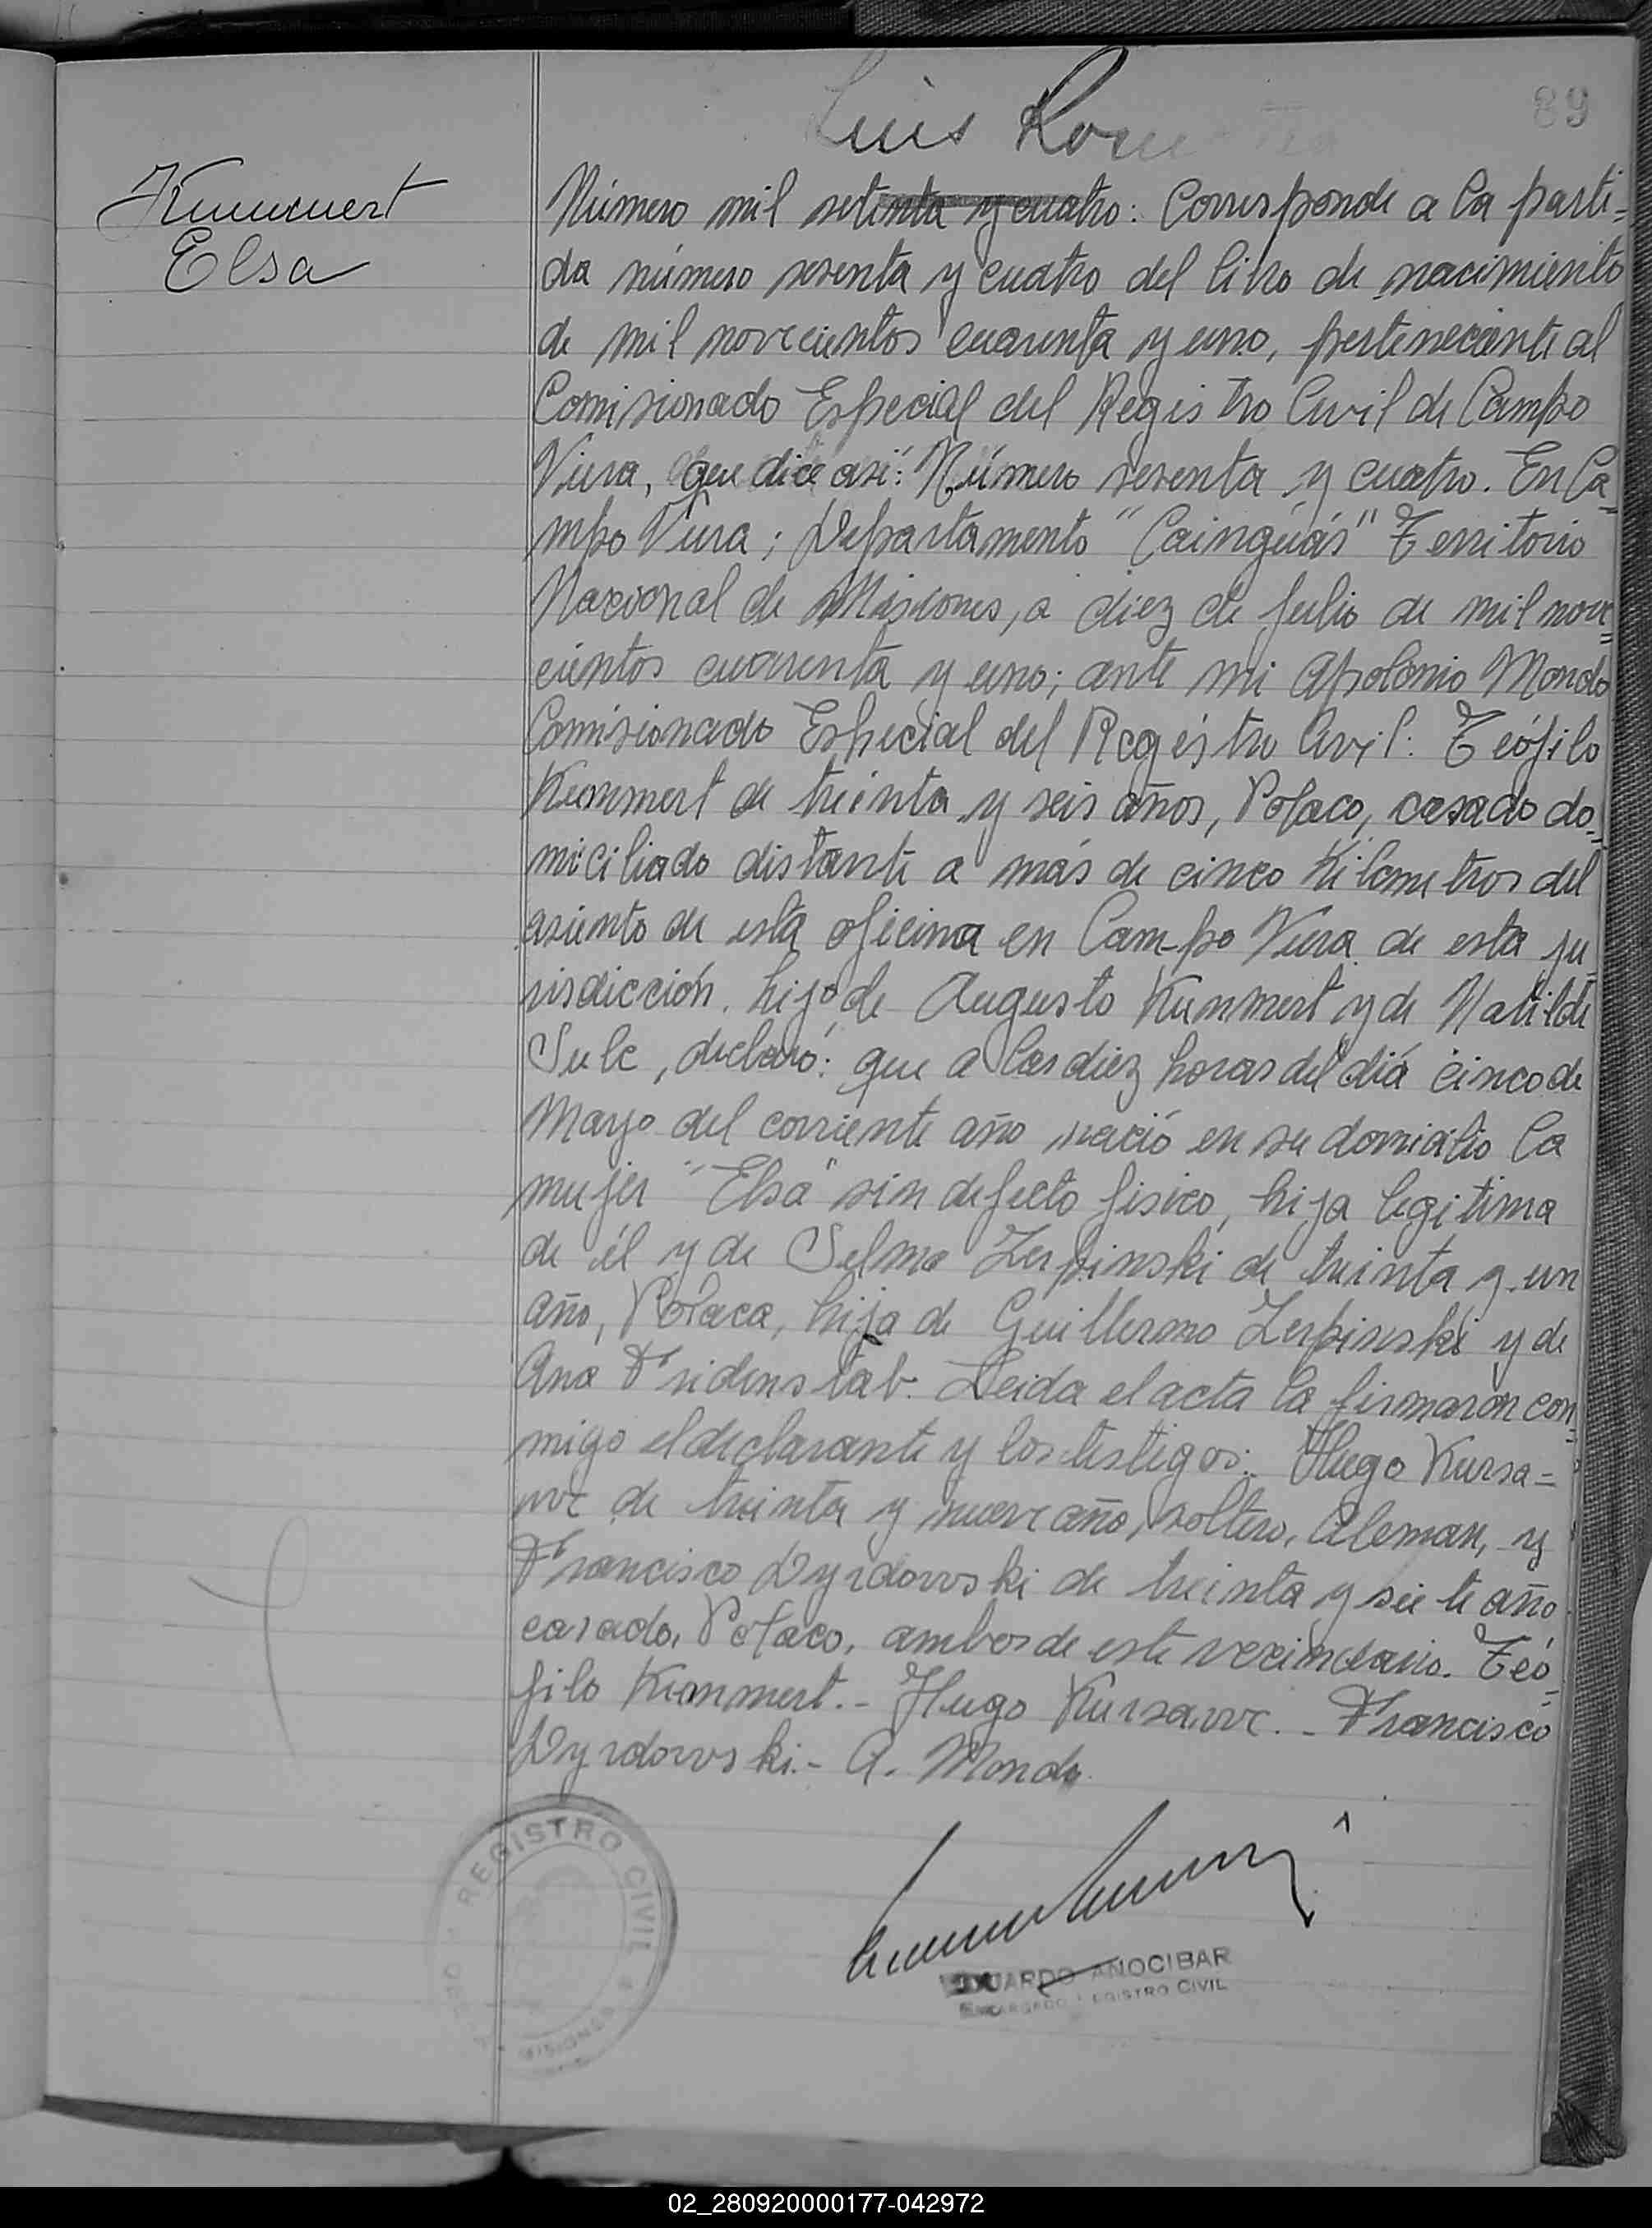 89
Luis
Kummert
Elsa
Número mil setenta y cuatro: Corresponde a la parti=
da número sesenta y cuatro del libro de nacimiento
de mil novecientos cuarenta y uno, perteneciente al
Comisionado Especial del Registro Civil de Campo
Viera, que dice así: Número sesenta y cuatro. En Ca=
mpo Viera; Departamento "Cainguás" Territorio
Nacional de Misiones, a diez de Julio de mil nove=
cientos cuarenta y uno; ante mi Apolonio Mondo
Comisionado Especial del Registro Civil: Teófilo
Kummert de treinta y seis años, Polaco, casado do=
miciliado distante a más de cinco Kilometros del
asiento de esta oficina en Campo Viera de esta ju
risdicción. hijo de Augusto Kummert y de Natilde
Sulc, declaró: que a las diez horas del día cinco de
Mayo del corriente año nació en su domicilio la
mujer "Elsa" sin defecto fisico, hija legitima
de él y de Selma Zerpinski de treinta y un
año, Polaca, hija de Guillermo Zerpinski y de
Ana Fridenstab. Leida el acta la firmaron con=
migo el declarante y los testigos: Hugo Kursa=
wc de treinta y nueve año, soltero, Aleman, y
Francisco Dyrdowski de treinta y siete año
casado, Polaco, ambos de este vecindario. Teó=
filo Kummert.- Hugo Kursawc.- Francisco
Dyrdowski.- A. Mondo.
REGISTRO CIVIL
MISIONES
EDUARDO AÑOCIBAR
ENCARGADO REGISTRO CIVIL
02_280920000177-042972